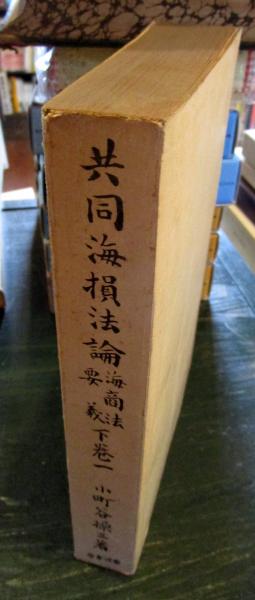 共同海損法論
海商法
要義
下巻一
小町谷操三著